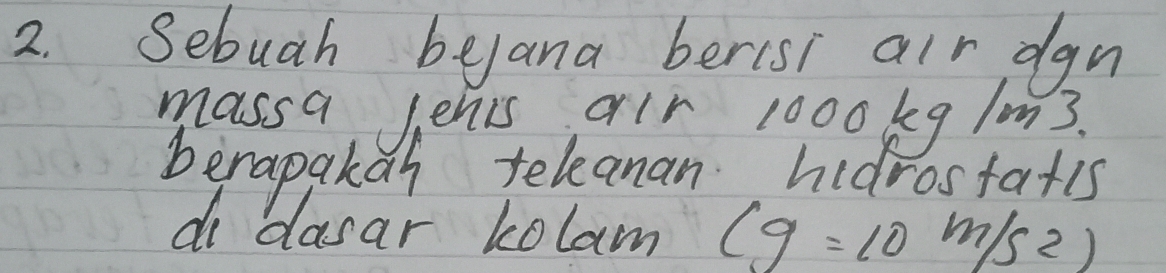 2. Sebuah bejana berisi air dgn
massa jenis air 1000 kg/m3.
berapakah tekanan hidrostatis
di dasar kolam (g = 10 m/s2)